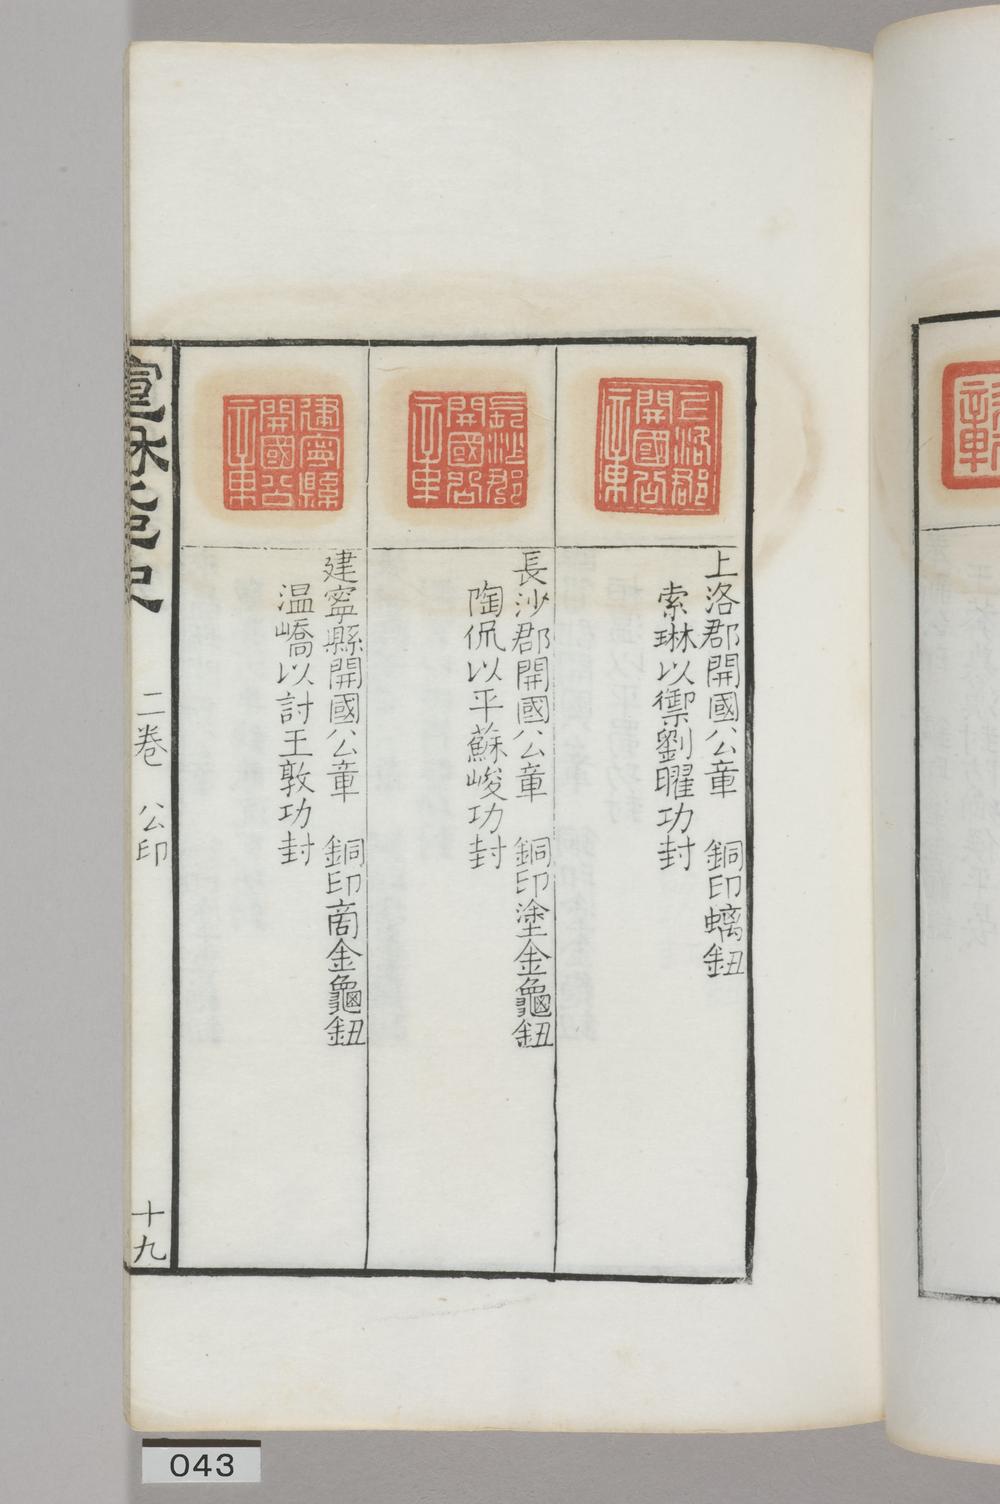 上洛郡開國公章
上洛郡開國公章　銅印螭鈕
索琳以禦劉曜功封
長沙郡開國公章
長沙郡開國公章　銅印塗金龜鈕
陶侃以平蘇峻功封
建寧縣開國公章
建寧縣開國公章　銅印商金龜鈕
温嶠以討王敦功封
二卷　公印
十九
043